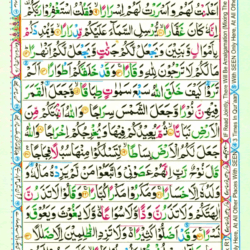 اَعْلَنْتُ لَهُمْ وَاَسْرَرْتُ لَهُمْ اِسْرَارًا ۙ فَقُلْتُ اسْتَغْفِرُوْا رَبَّكُمْ
اِنَّهٗ كَانَ غَفَّارًا ۙ يُّرْسِلِ السَّمَآءَ عَلَيْكُمْ مِّدْرَارًا ۙ وَّيُمْدِدْكُمْ
بِاَمْوَالٍ وَّبَنِيْنَ وَيَجْعَلْ لَّكُمْ جَنّٰتٍ وَّيَجْعَلْ لَّكُمْ اَنْهٰرًا ؕ مَا
لَكُمْ لَا تَرْجُوْنَ لِلّٰهِ وَقَارًا ۚ وَقَدْ خَلَقَكُمْ اَطْوَارًا اَلَمْ
تَرَوْا كَيْفَ خَلَقَ اللّٰهُ سَبْعَ سَمٰوٰتٍ طِبَاقًا ۙ وَّجَعَلَ الْقَمَرَ
فِيْهِنَّ نُوْرًا وَّجَعَلَ الشَّمْسَ سِرَاجًا وَاللّٰهُ اَنْۢبَتَكُمْ مِّنَ
الْاَرْضِ نَبَاتًا ۙ ثُمَّ يُعِيْدُكُمْ فِيْهَا وَيُخْرِجُكُمْ اِخْرَاجًا وَاللّٰهُ
جَعَلَ لَكُمُ الْاَرْضَ بِسَاطًا ۙ لِّتَسْلُكُوْا مِنْهَا سُبُلًا فِجَاجًا
قَالَ نُوْحٌ رَّبِّ اِنَّهُمْ عَصَوْنِيْ وَاتَّبَعُوْا مَنْ لَّمْ يَزِدْهُ مَالُهٗ وَوَلَدُهٗٓ
اِلَّا خَسَارًا ۚ وَمَكَرُوْا مَكْرًا كُبَّارًا ۚ وَقَالُوْا لَا تَذَرُنَّ
اٰلِهَتَكُمْ وَلَا تَذَرُنَّ وَدًّا وَّلَا سُوَاعًا ۙ وَّلَا يَغُوْثَ وَيَعُوْقَ وَ
نَسْرًا ۚ وَقَدْ اَضَلُّوْا كَثِيْرًا ۚ وَلَا تَزِدِ الظّٰلِمِيْنَ اِلَّا ضَلٰلًا
If Read Jointly, There Will Be Amalgamation (Entering The
With SEEN Only Here, At All Other